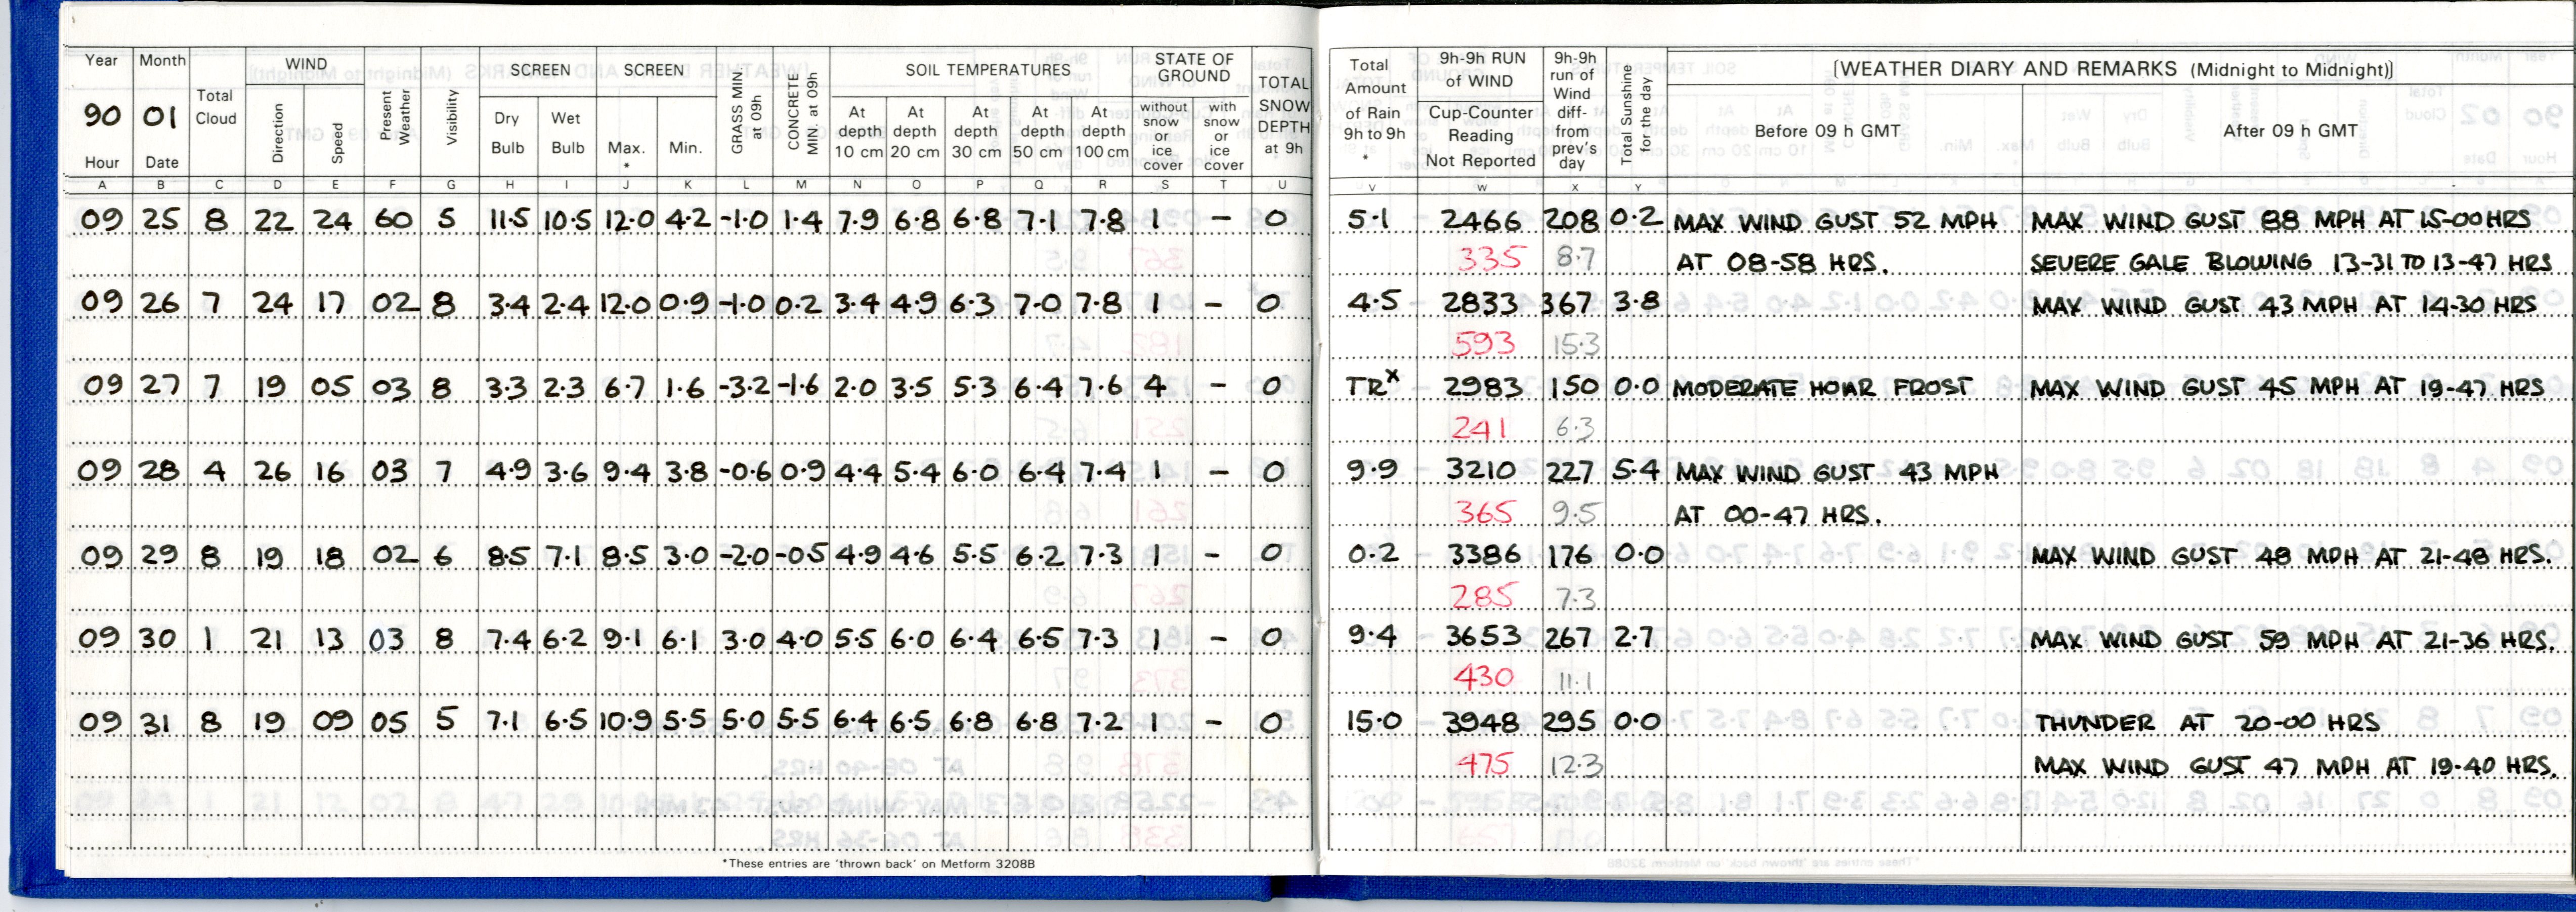 Year Month WIND SCREEN SCREEN SOIL TEMPERATURES STATE OF GROUND
90 01 Total Cloud Direction Speed Present Weather Visibility Dry Bulb Wet Bulb Max. * Min. GRASS MIN. at 09h CONCRETE MIN. at 09h At depth 10 cm At depth 20 cm At depth 30 cm At depth 50 cm At depth 100 cm without snow or ice cover with snow or ice cover TOTAL SNOW DEPTH at 9h
Hour Date
Total Amount of Rain 9h to 9h * 9h-9h RUN of WIND Cup-Counter Reading Not Reported 9h-9h run of Wind diff- from prev's day Total Sunshine for the day [WEATHER DIARY AND REMARKS (Midnight to Midnight)]
Before 09 h GMT After 09 h GMT
A B C D E F G H I J K L M N O P Q R S T U V W X Y
09 25 8 22 24 60 5 11.5 10.5 12.0 4.2 -1.0 1.4 7.9 6.8 6.8 7.1 7.8 1 - 0 5.1 2466 208 0.2 MAX WIND GUST 52 MPH MAX WIND GUST 88 MPH AT 15-00 HRS
335 8.7 AT 08-58 HRS. SEVERE GALE BLOWING 13-31 TO 13-47 HRS
09 26 7 24 17 02 8 3.4 2.4 12.0 0.9 -1.0 0.2 3.4 4.9 6.3 7.0 7.8 1 - 0 4.5 2833 367 3.8 MAX WIND GUST 43 MPH AT 14-30 HRS
593 15.3
09 27 7 19 05 03 8 3.3 2.3 6.7 1.6 -3.2 -1.6 2.0 3.5 5.3 6.4 7.6 4 - 0 TRx 2983 150 0.0 MODERATE HOAR FROST MAX WIND GUST 45 MPH AT 19-47 HRS
241 6.3
09 28 4 26 16 03 7 4.9 3.6 9.4 3.8 -0.6 0.9 4.4 5.4 6.0 6.4 7.4 1 - 0 9.9 3210 227 5.4 MAX WIND GUST 43 MPH
365 9.5 AT 00-47 HRS.
09 29 8 19 18 02 6 8.5 7.1 8.5 3.0 -2.0 -0.5 4.9 4.6 5.5 6.2 7.3 1 - 0 0.2 3386 176 0.0 MAX WIND GUST 48 MPH AT 21-48 HRS.
285 7.3
09 30 1 21 13 03 8 7.4 6.2 9.1 6.1 3.0 4.0 5.5 6.0 6.4 6.5 7.3 1 - 0 9.4 3653 267 2.7 MAX WIND GUST 59 MPH AT 21-36 HRS.
430 11.1
09 31 8 19 09 05 5 7.1 6.5 10.9 5.5 5.0 5.5 6.4 6.5 6.8 6.8 7.2 1 - 0 15.0 3948 295 0.0 THUNDER AT 20-00 HRS
475 12.3 MAX WIND GUST 47 MPH AT 19-40 HRS.
*These entries are 'thrown back' on Metform 3208B